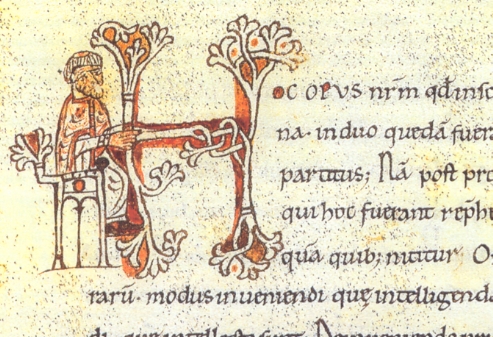 Hoc opus nr̄m qđ insc
na· in duo quedā fuer
partitus; Nā post pro
qui hoc fuerant rep̄h
quā quib; nititur O
rarū· modus inveniendi quę intelligenda